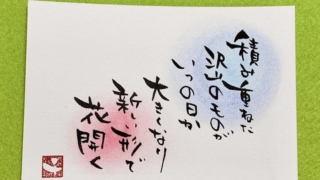 積み重ねた
沢山のものが
いつの日か
大きくなり
新しい形で
花開く